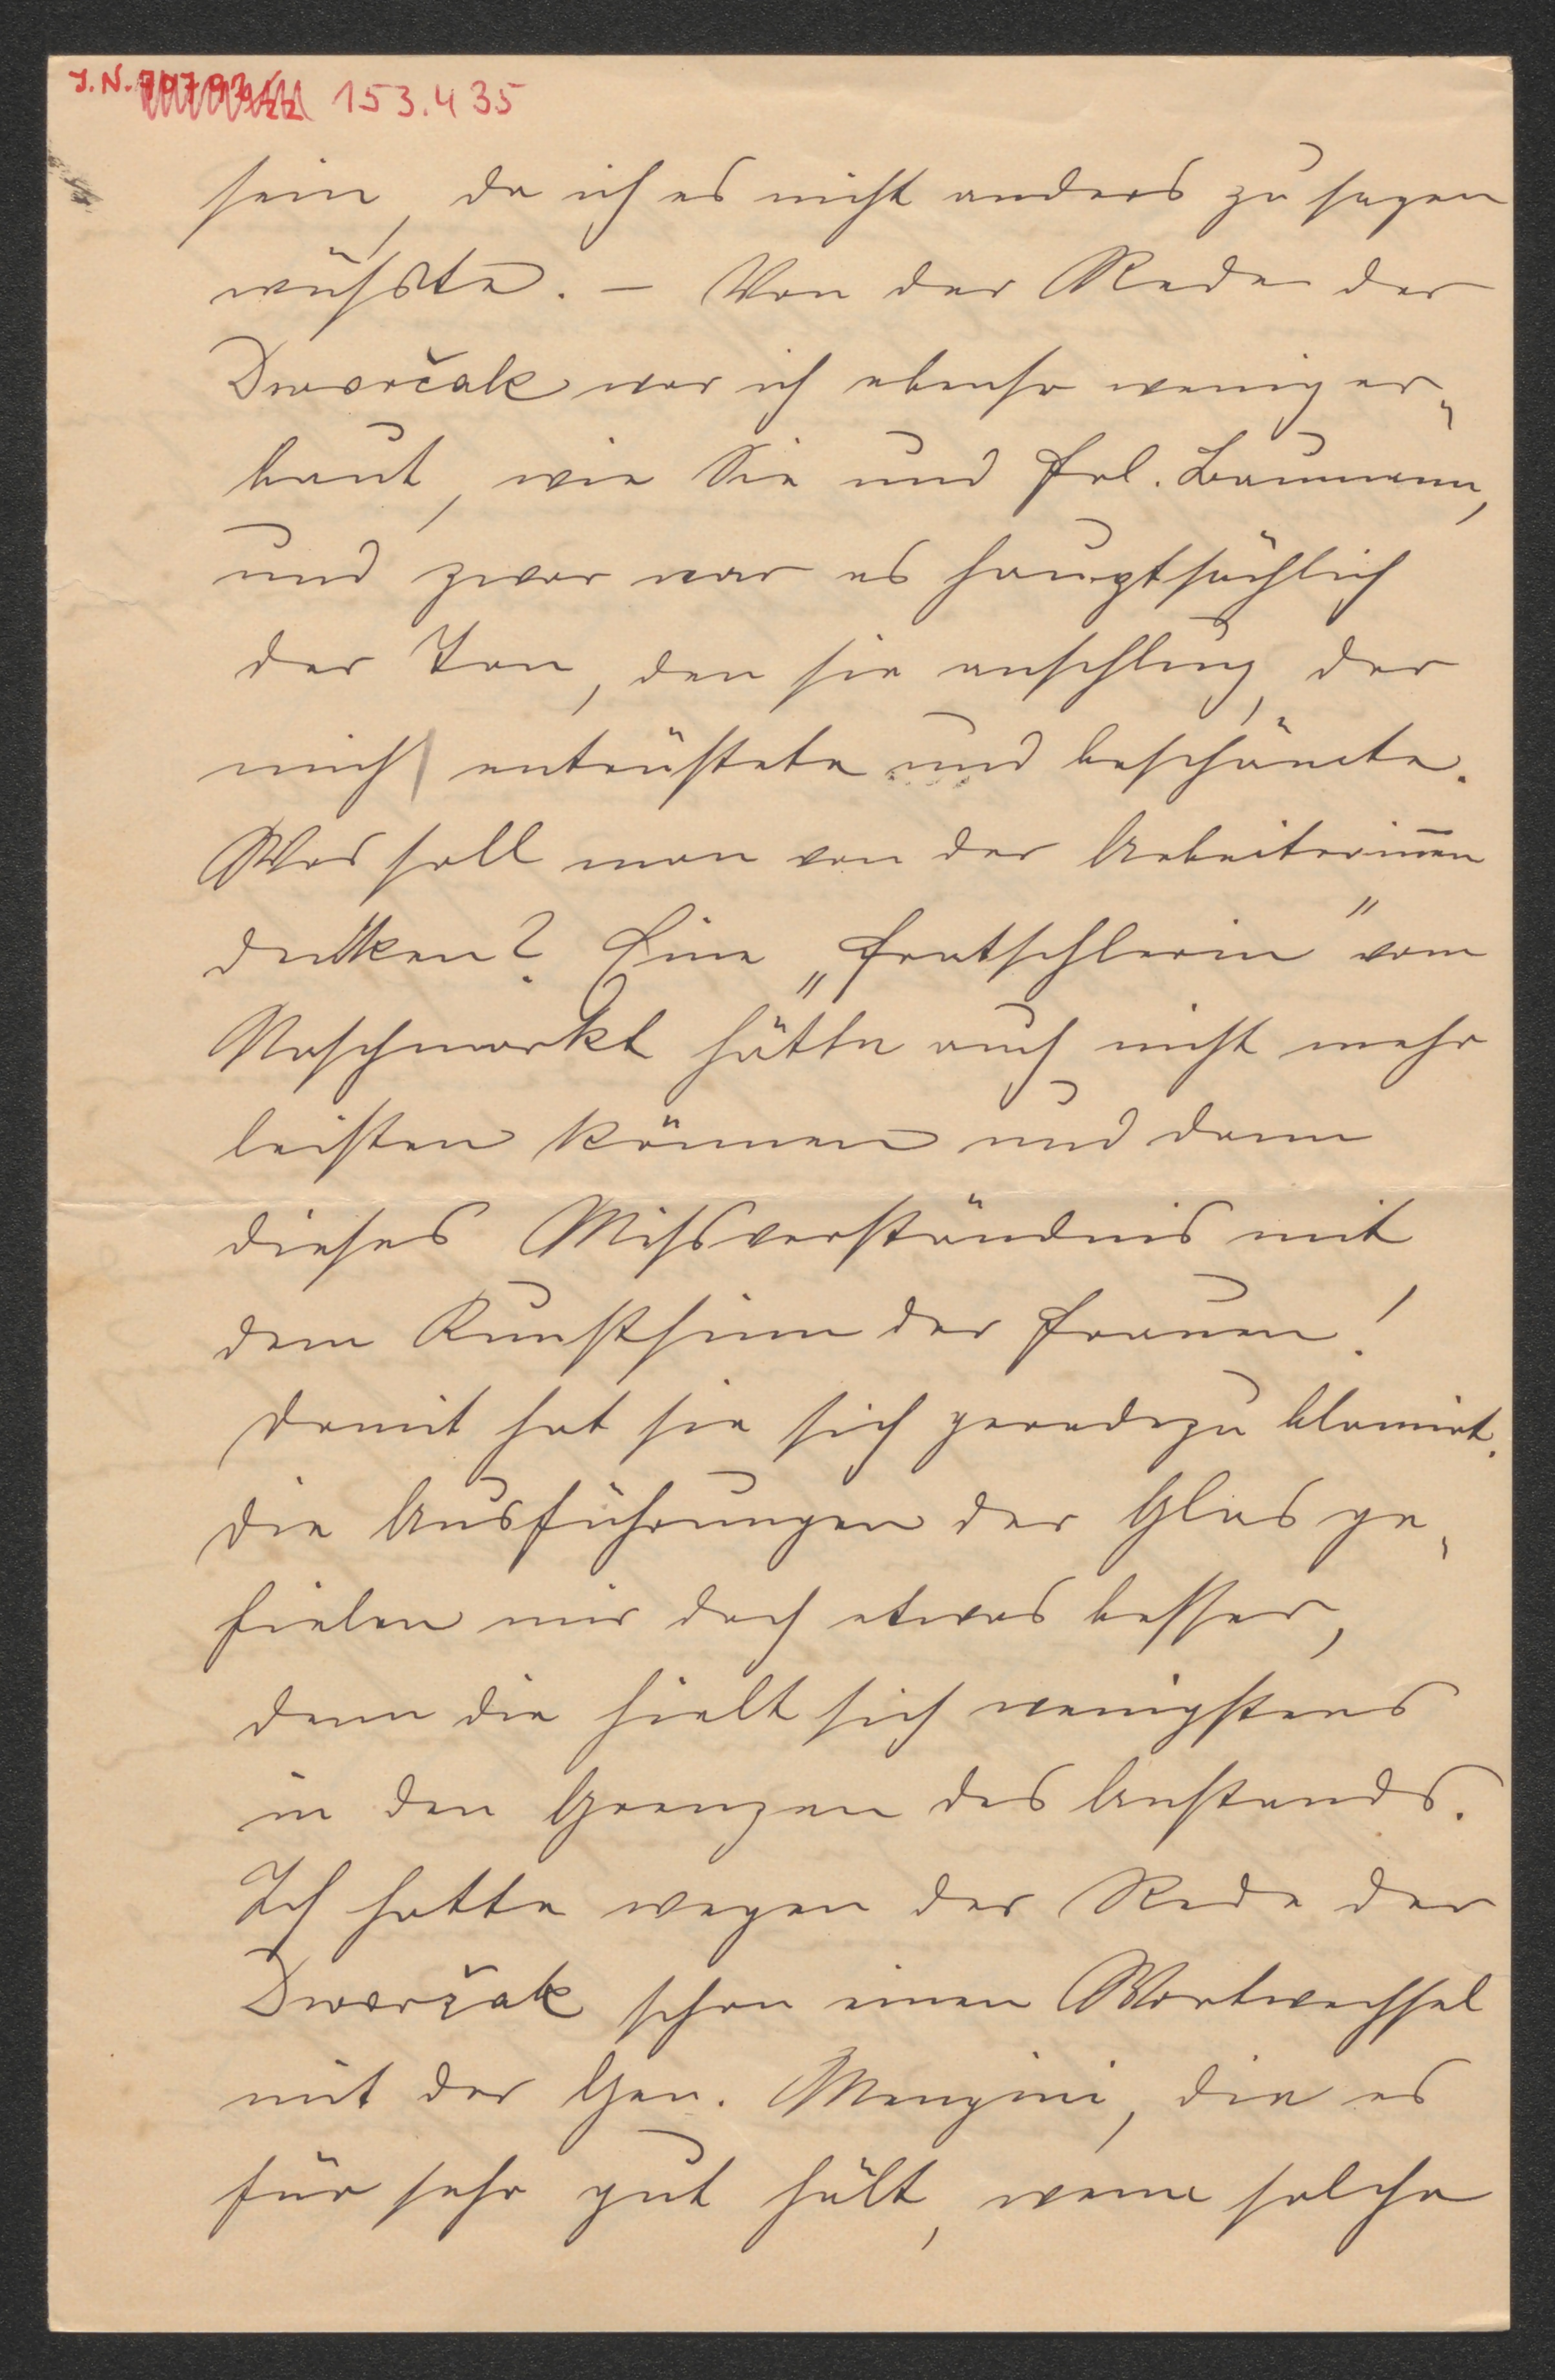 J.N. 153.435
sein, da ich es nicht anders zu sagen
wüßte. – Von der Rede der
Dworčak war ich ebenso wenig er-
baut, wie Sie und Frl. Baumann,
und zwar war es hauptsächlich
der Ton, den sie anschlug, der
mich entrüstete und beschämte.
Was soll man von der Arbeiterinn̄en
denken? Eine „Fratschlerin" vom
Naschmarkt hätte auch nicht mehr
leisten können und dann
dieses Missverständnis mit
dem Kunstsinn der Frauen!
Damit hat sie sich geradezu blamirt.
Die Ausführungen der Glas ge-
fielen mir doch etwas besser,
denn die hielt sich wenigstens
in den Grenzen des Anstands.
Ich hatte wegen der Rede der
Dworžak schon einen Wortwechsel
mit der Gen. Menzini, die es
für sehr gut hält, wenn solche